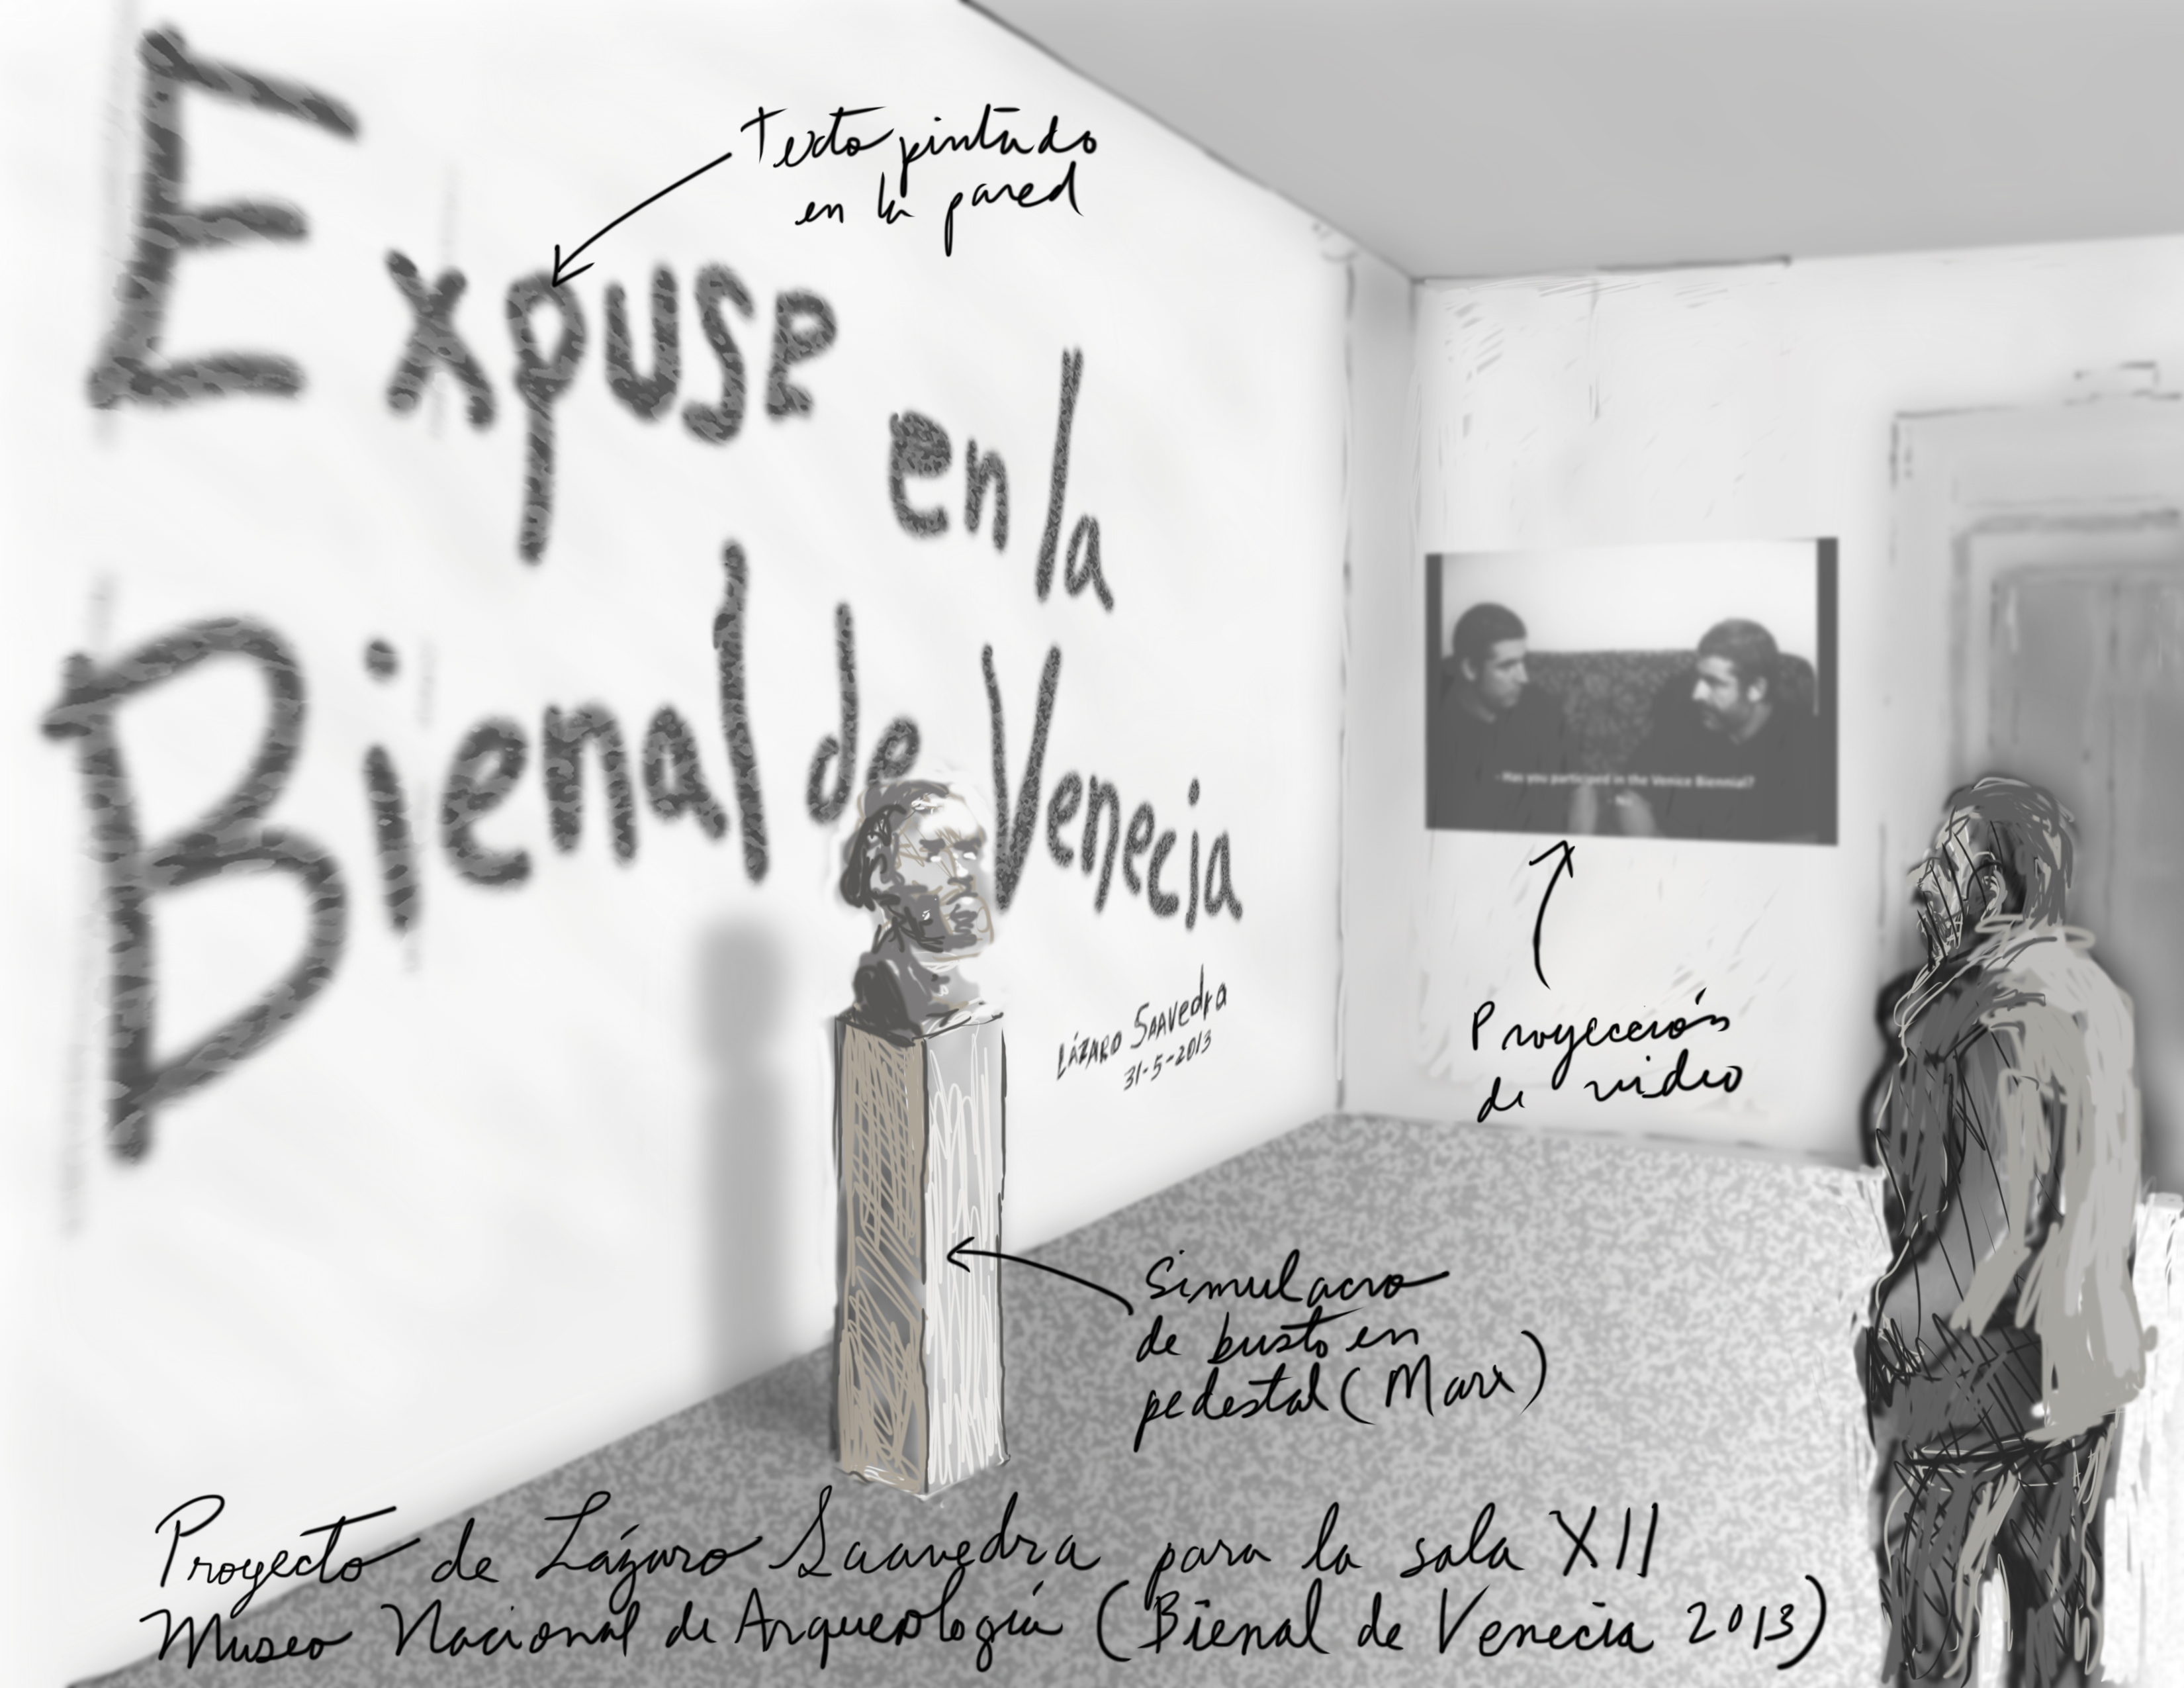 Texto pintado
en la pared
Expuse
en la
Bienal de Venecia
- Has you participed in the Venice Biennial?
LÁZARO SAAVEdrA
31-5-2013
Proyección
de video
Simulacro
de busto en
pedestal (Marx)
Proyecto de Lázaro Saavedra para la sala XII
Museo Nacional de Arqueología (Bienal de Venecia 2013)